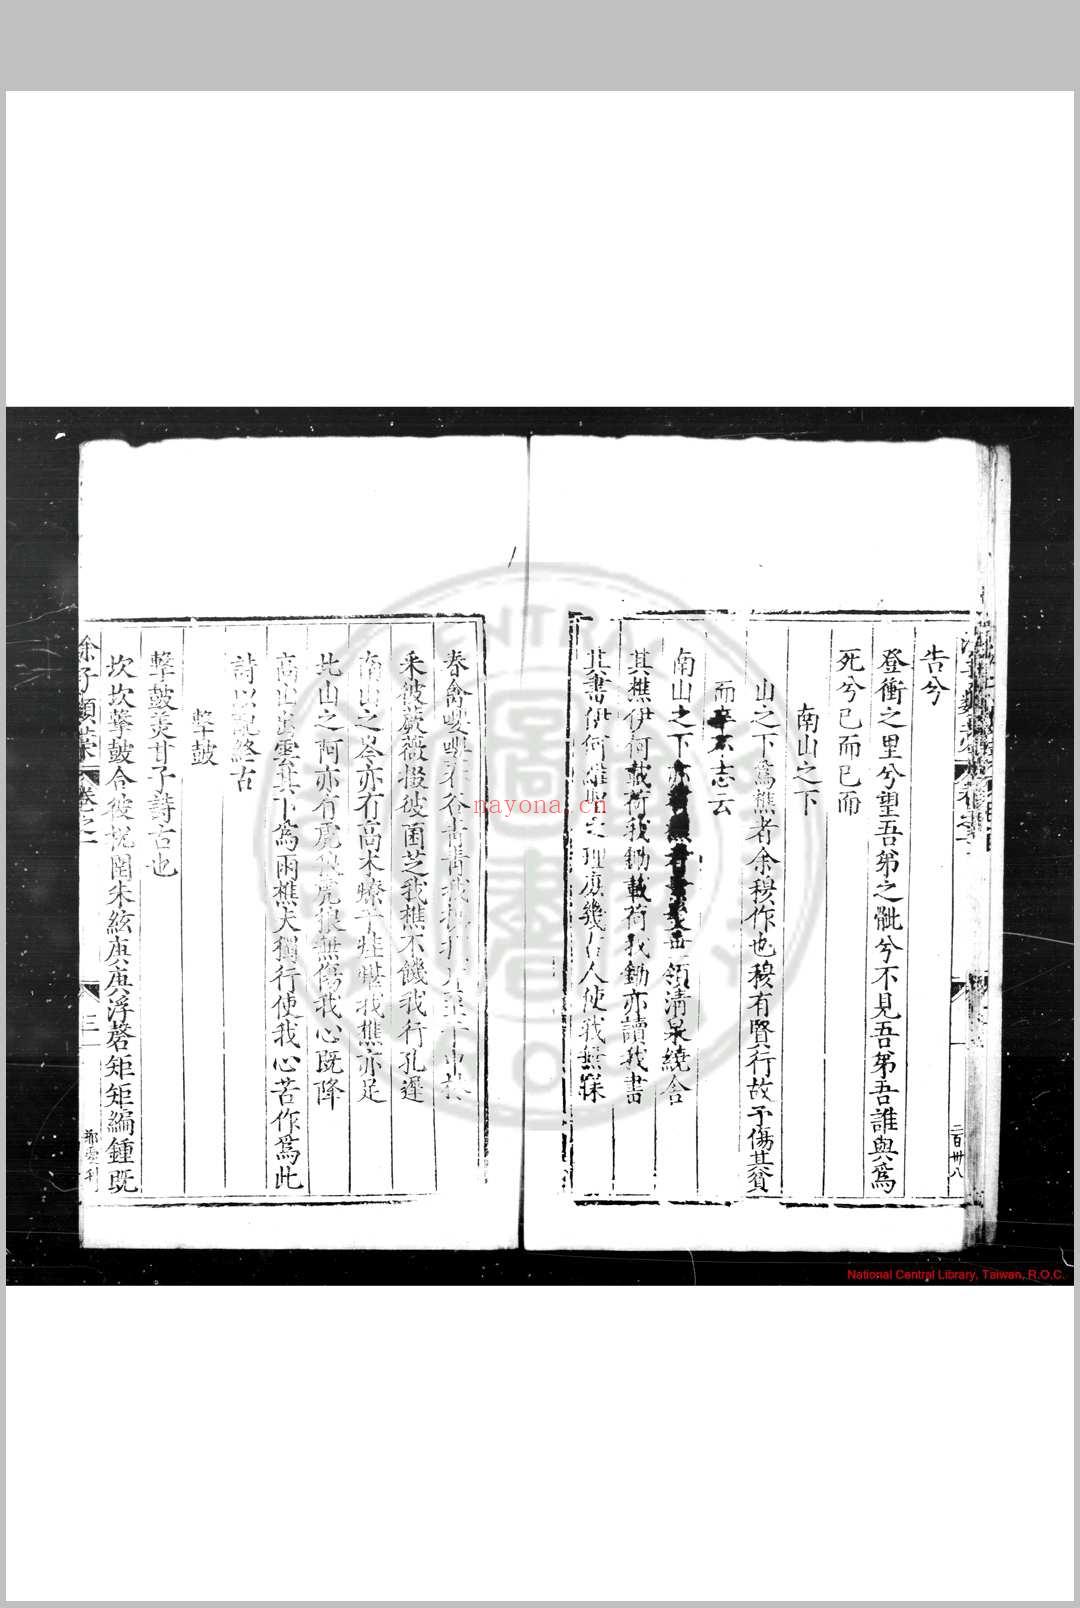 告兮
登衝之里兮望吾弟之骴兮不見吾弟吾誰與爲
死兮已而已而
南山之下
山之下爲樵者余稑作也稑有賢行故予傷其貧
而卒不志云
南山之下亦 領清泉繞舍
其樵伊何載荷我鋤載荷我鋤亦讀我書
其書伊何 之理庶幾古人使我無寐
春禽嚶嚶在谷 我
采彼蕨薇掇彼菌芝我樵不饑我行孔遲
南山之岑亦有高木療予 我樵亦足
北山之阿亦有虎 虎狼無傷我心既降
高山出雲其下爲雨樵夫獨行使我心苦作爲此
詩以 終古
擊鼓
擊鼓美甘子詩古也
坎坎擊鼓合彼 朱絃庚庚浮磬矩矩編鍾既
余子類藁 卷之二 三
二百卅八
nayona.cn
National Central Library, Taiwan, R.O.C.